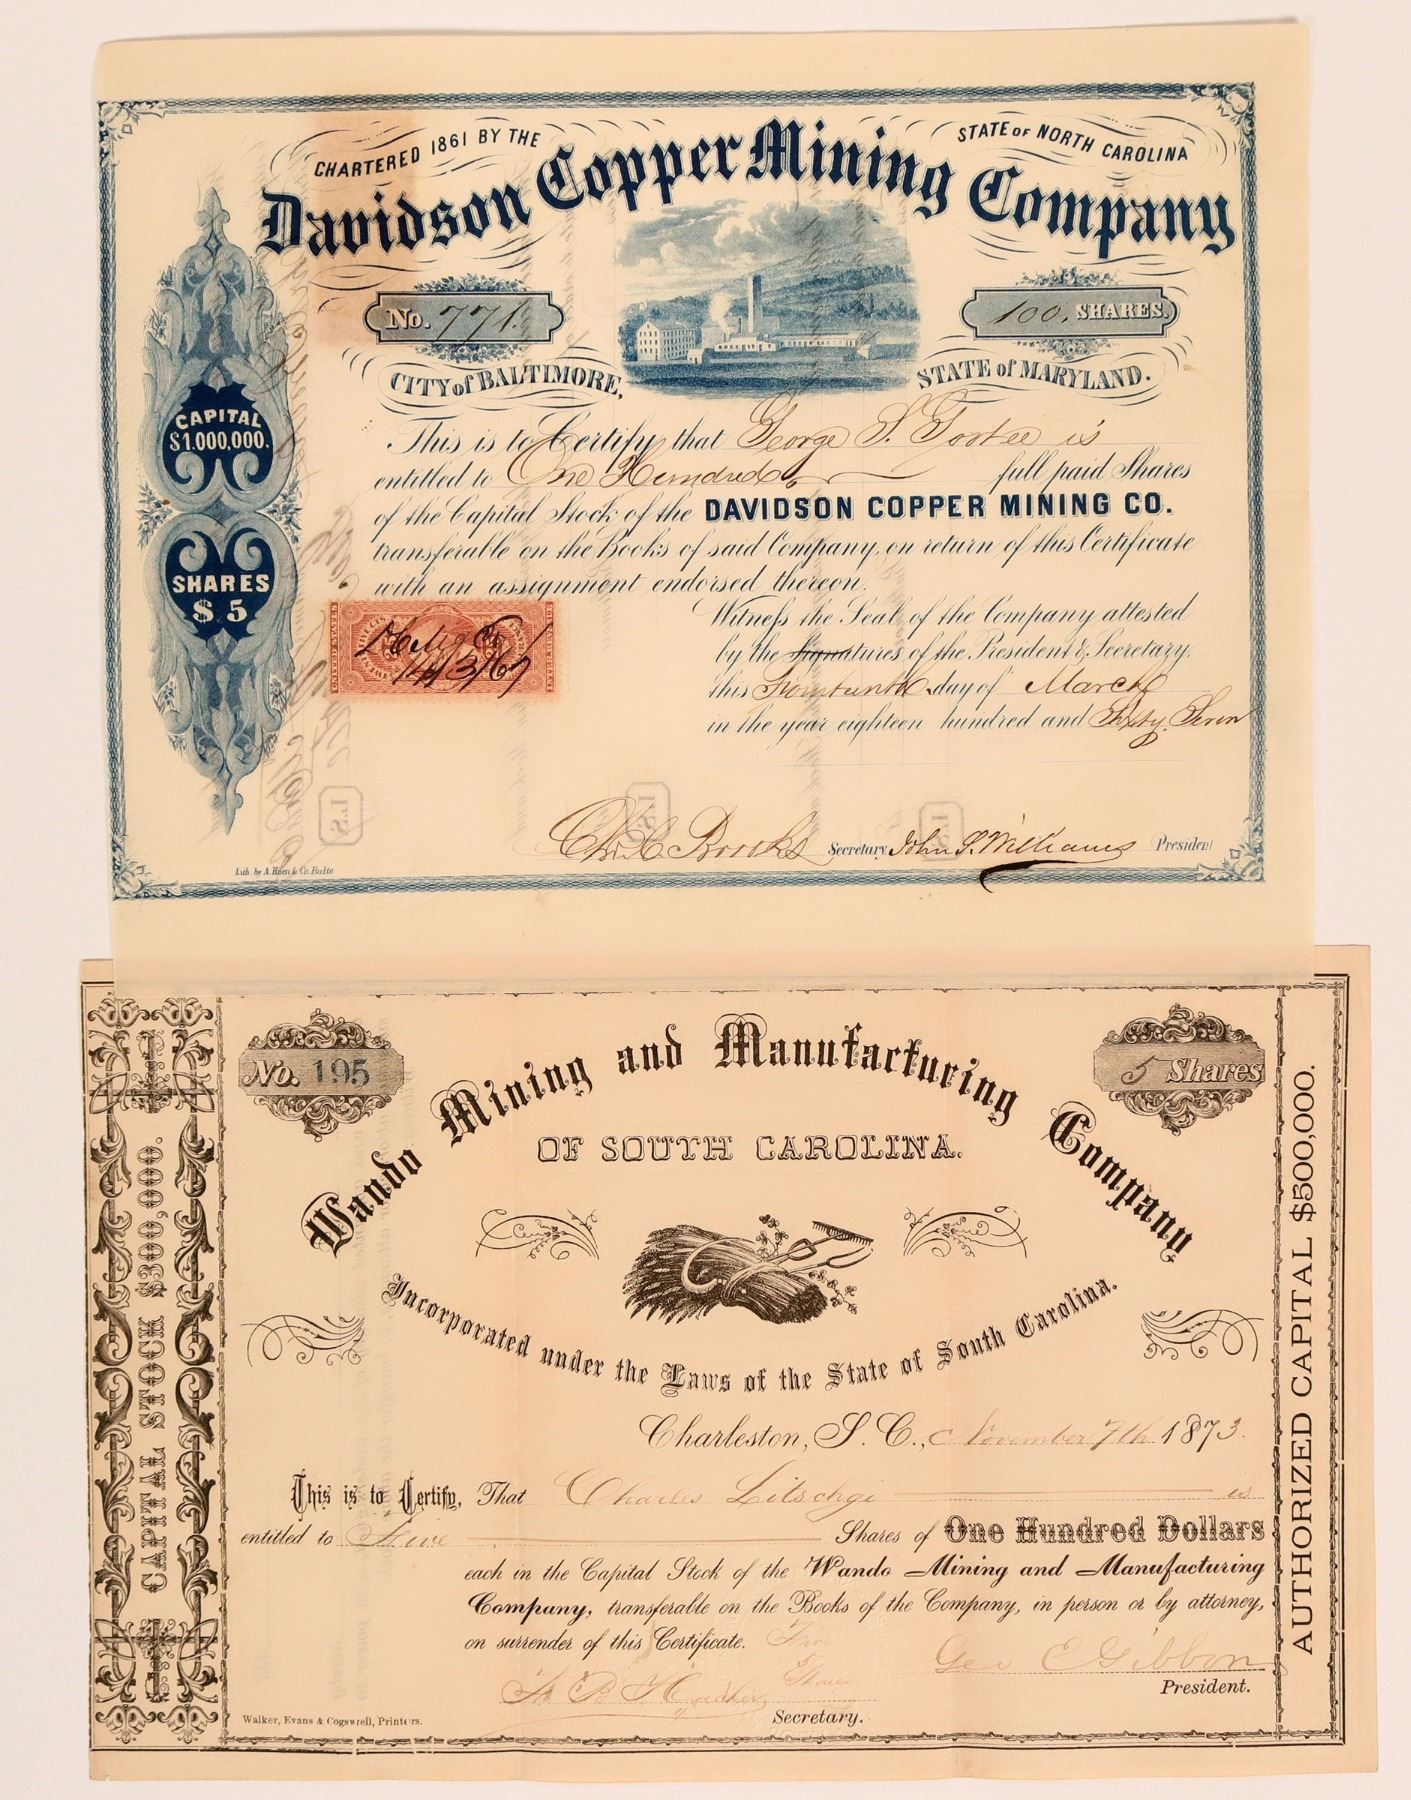 CHARTERED 1861 BY THE STATE OF NORTH CAROLINA
Davidson Copper Mining Company
No. 771.
100. SHARES.
CITY of BALTIMORE, STATE of MARYLAND.
CAPITAL
$1,000,000.
SHARES
$5
This is to Certify that George S. is
entitled to One Hundred full paid Shares
of the Capital Stock of the DAVIDSON COPPER MINING CO.
transferable on the Books of said Company, on return of this Certificate
with an assignment endorsed thereon.
Witness the Seal of the Company attested
by the Signatures of the President & Secretary.
this Fourteenth day of March
in the year eighteen hundred and Sixty Seven
14/3/67
Chs. C. Brooks Secretary. John S. Williams President
Lith. by A. Hoen & Co. Balto
No. 195
5 Shares
Wando Mining and Manufacturing Company
OF SOUTH CAROLINA.
Incorporated under the Laws of the State of South Carolina.
CAPITAL STOCK $300,000.
AUTHORIZED CAPITAL $500,000.
Charleston, S. C., November 7th 1873.
This is to Certify, That Charles Litschgi is
entitled to Five Shares of One Hundred Dollars
each in the Capital Stock of the Wando Mining and Manufacturing
Company, transferable on the Books of the Company, in person or by attorney,
on surrender of this Certificate.
Geo E Gibbon
President.
Secretary.
Walker, Evans & Cogswell, Printers.